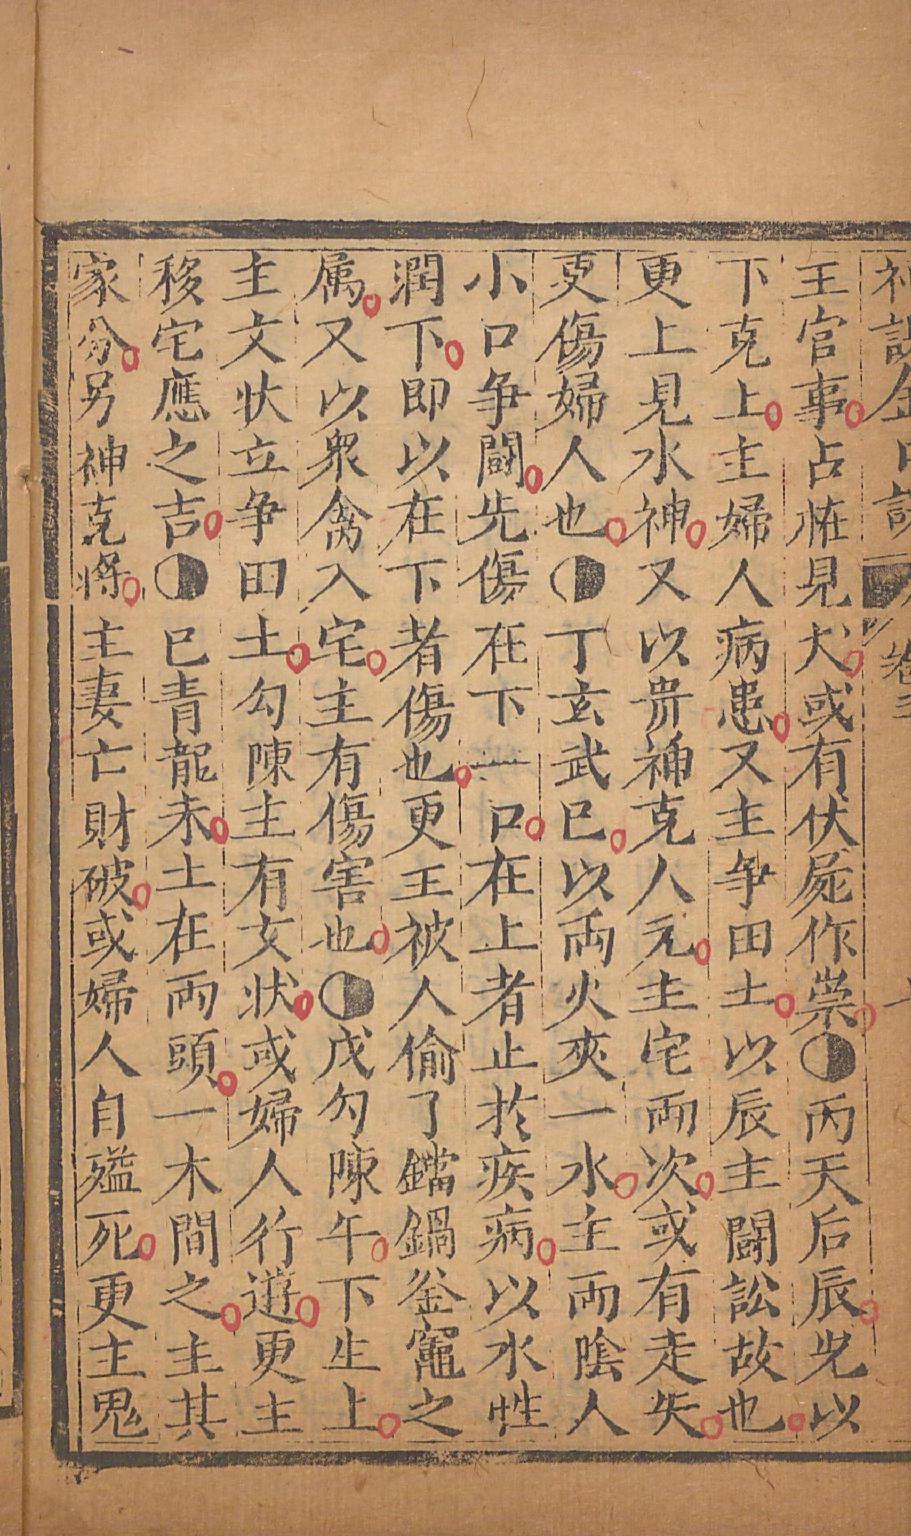 神課金口訣 卷三
王官事占怪見犬或有伏屍作祟丙天后辰先以
下克上主婦人病患又主争田土以辰主鬪訟故也
更上見水神又以貴神克人元主宅両次或有走失
更傷婦人也丁玄武巳以両火夾一水主両陰人
小口争鬪先傷在下一口在上者止於疾病以水性
潤下即以在下者傷也更主被人偷了鐺鍋釜竈之
属又以衆禽入宅主有傷害也戊勾陳午下生上
主文状立争田土勾陳主有女状或婦人行遊更主
移宅應之吉巳青龍未土在両頭一木間之主其
家分另神克將主妻亡財破或婦人自殟死更主鬼